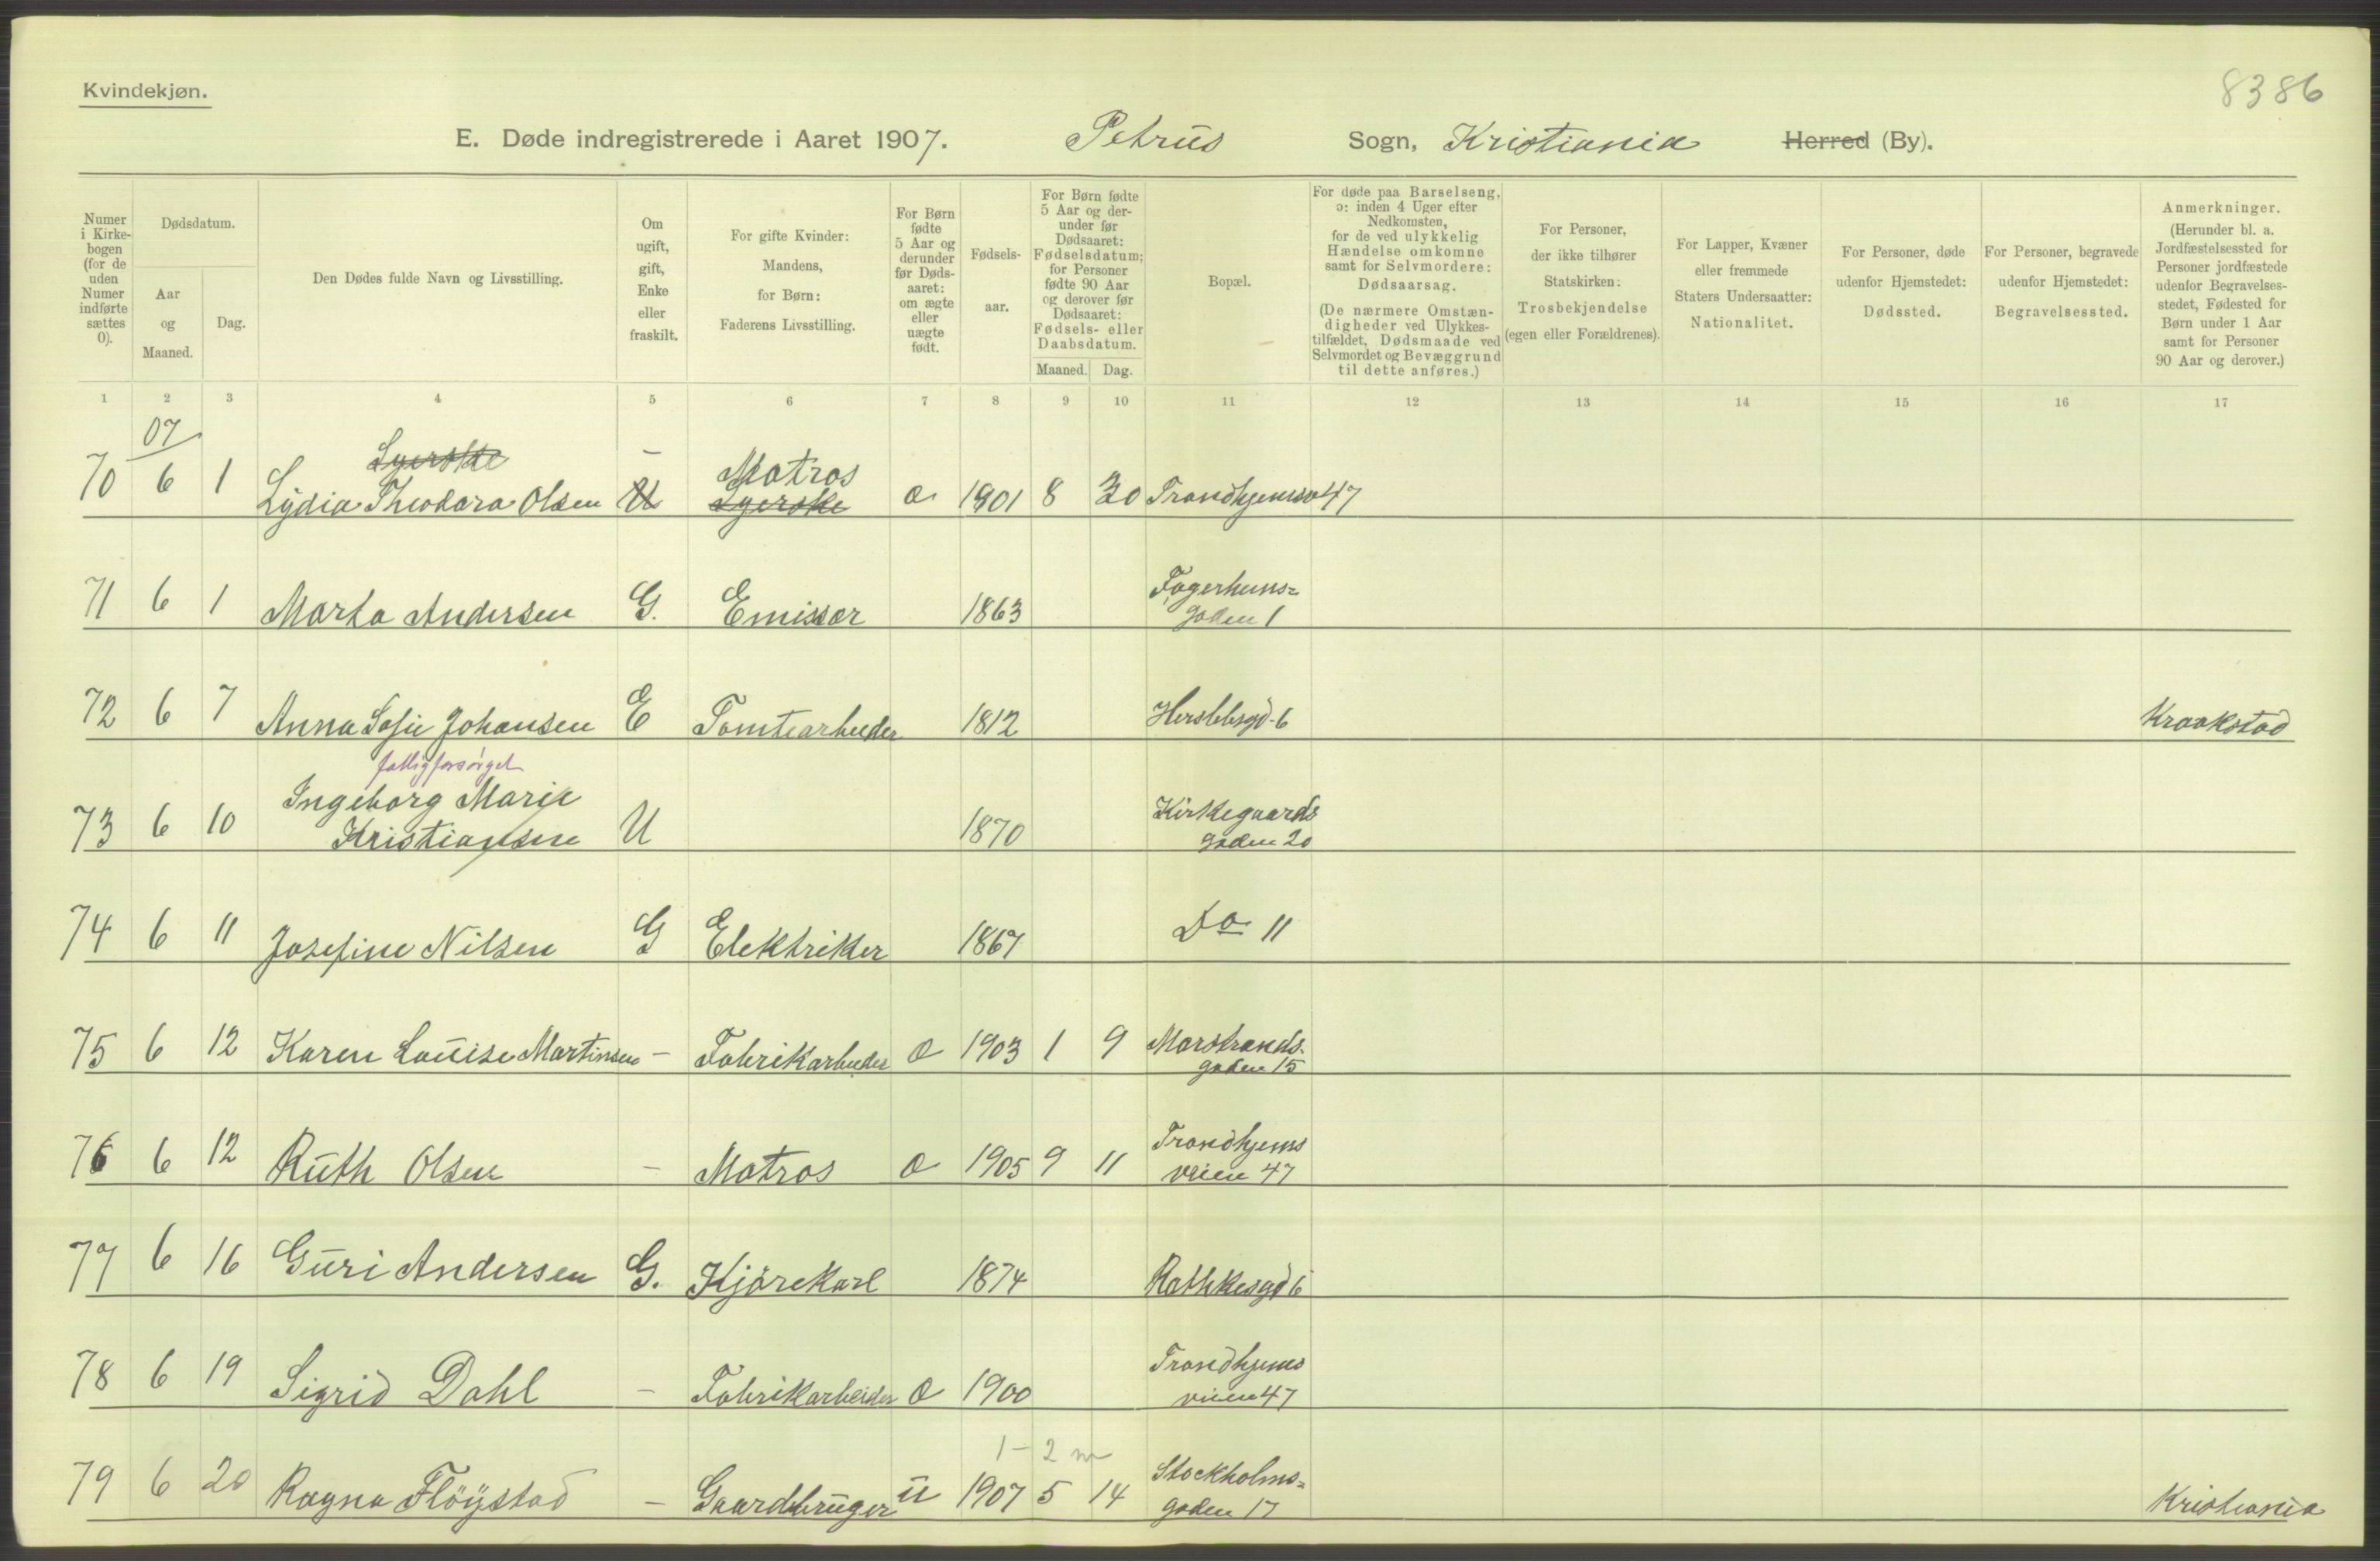 Kvindekjøn.
8386
E. Døde indregistrerede i Aaret 1907. Petrus Sogn, Kristiania Herred (By).
Numer i Kirkebogen (for de uden Numer indførte sættes 0).
Dødsdatum.
Aar og Maaned.
Dag.
Den Dødes fulde Navn og Livsstilling.
Om ugift, gift, Enke eller fraskilt.
For gifte Kvinder: Mandens, for Børn: Faderens Livsstilling.
For Børn fødte 5 Aar og derunder før Dødsaaret: om ægte eller uægte født.
Fødselsaar.
For Børn fødte 5 Aar og derunder før Dødsaaret: Fødselsdatum; for Personer fødte 90 Aar og derover før Dødsaaret: Fødsels- eller Daabsdatum.
Maaned. Dag.
Bopæl.
For døde paa Barselseng, ɔ: inden 4 Uger efter Nedkomsten, for de ved ulykkelig Hændelse omkomne samt for Selvmordere: Dødsaarsag.
(De nærmere Omstændigheder ved Ulykkestilfældet, Dødsmaade ved Selvmordet og Bevæggrund til dette anføres.)
For Personer, der ikke tilhører Statskirken: Trosbekjendelse (egen eller Forældrenes).
For Lapper, Kvæner eller fremmede Staters Undersaatter: Nationalitet.
For Personer, døde udenfor Hjemstedet: Dødssted.
For Personer, begravede udenfor Hjemstedet: Begravelsessted.
Anmerkninger.
(Herunder bl. a. Jordfæstelsessted for Personer jordfæstede udenfor Begravelsesstedet, Fødested for Børn under 1 Aar samt for Personer 90 Aar og derover.)
1 2 3 4 5 6 7 8 9 10 11 12 13 14 15 16 17
07
Syerske - Matros
70 6 1 Lydia Theodora Olsen U Syerske a 1901 8 30 Trondhjemsv 47
71 6 1 Marta Andersen G. Emissær 1863 Fagerheims=
gaden 1
72 6 7 Anna Sofie Johansen E Tomtearbeider 1812 Herslebsgd. 6 Kraakstad
fattigforsørget
73 6 10 Ingeborg Marie
Kristiansen U 1870 Kirkegaards
gaden 20
74 6 11 Josefine Nilsen G Elektriker 1867 Do 11
75 6 12 Karen Louise Martinsen - Fabrikarbeider a 1903 1 9 Marstrands-
gaden 15
76 6 12 Ruth Olsen - Matros a 1905 9 11 Trondhjems
veien 47
77 6 16 Guri Andersen G. Kjörekarl 1874 Rathkesgd 6
78 6 19 Sigrid Dahl - Fabrikarbeider a 1900 Trondhjems
veien 47
1 - 2 m
79 6 20 Ragna Flöystad - Gaardbruger u 1907 5 14 Stockholms=
gaden 17 Kristiania